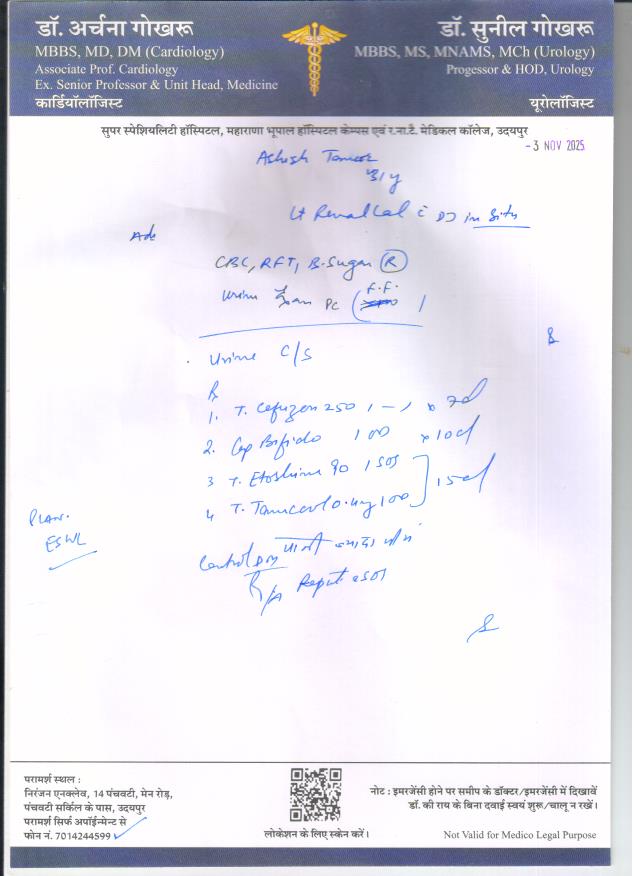 डॉ. अर्चना गोखरू
MBBS, MD, DM (Cardiology)
Associate Prof. Cardiology
Ex. Senior Professor & Unit Head, Medicine
कार्डियॉलॉजिस्ट
डॉ. सुनील गोखरू
MBBS, MS, MNAMS, MCh (Urology)
Progessor & HOD, Urology
यूरोलॉजिस्ट
सुपर स्पेशियलिटी हॉस्पिटल, महाराणा भूपाल हॉस्पिटल केम्पस एवं र.ना.टै. मेडिकल कॉलेज, उदयपुर
- 3 NOV 2025
Ashish
Lt Renal Cal c̄ DJ in Situ
Adv
CBC, RFT, B. Sugar (R)
Urine PC (F.F.
Urine C/S
Rx
1. T. 250 1-1 x 7d
2. Cap Bifido 1 OD x 10d
3 T. Etoshine 90 1 SOS
4 T. 0.4mg 1 OD
15d
Plan.
ESWL
Control DM पानी ज्यादा
R/A Report SOS
परामर्श स्थल :
निरंजन एनक्लेव, 14 पंचवटी, मेन रोड़,
पंचवटी सर्किल के पास, उदयपुर
परामर्श सिर्फ अपॉईन्मेन्ट से
फोन नं. 7014244599
लोकेशन के लिए स्केन करें।
नोट : इमरजेंसी होने पर समीप के डॉक्टर/इमरजेंसी में दिखावें
डॉ. की राय के बिना दवाई स्वयं शुरू/चालू न रखें।
Not Valid for Medico Legal Purpose